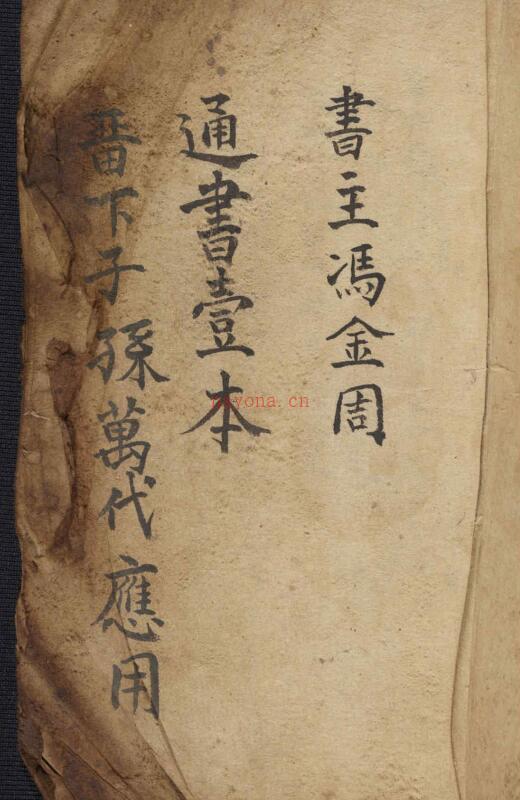 書主馮金周
通書壹本
畱下子孫萬代應用
nayona.cn